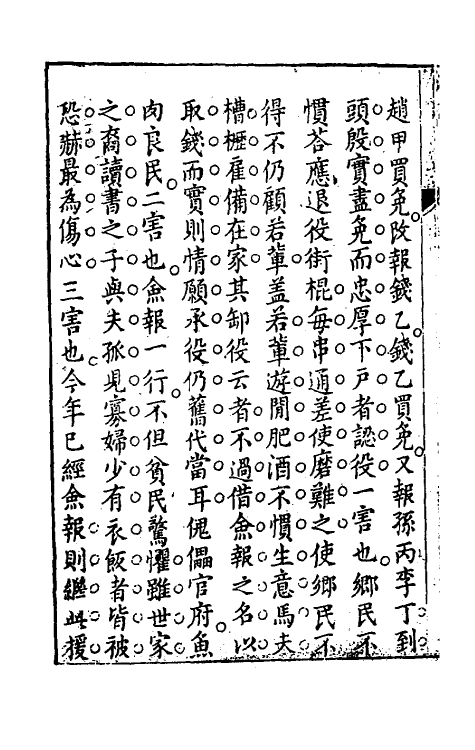 趙甲買免改報錢乙錢乙買免又報孫丙李丁到
頭殷實盡免而忠厚下戶者認役一害也鄉民不
慣荅應退役衙棍每串通差使磨難之使鄉民不
得不仍顧若輩蓋若輩遊閒肥酒不慣生意馬夫
槽櫪雇備在家其卸役云者不過借僉報之名以
取錢而實則情願承役仍舊代當耳傀儡官府魚
肉良民二害也僉報一行不但貧民驚懼雖世家
之裔讀書之子與夫孤兒寡婦少有衣飯者皆被
恐赫最為傷心三害也今年已經僉報則繼此援